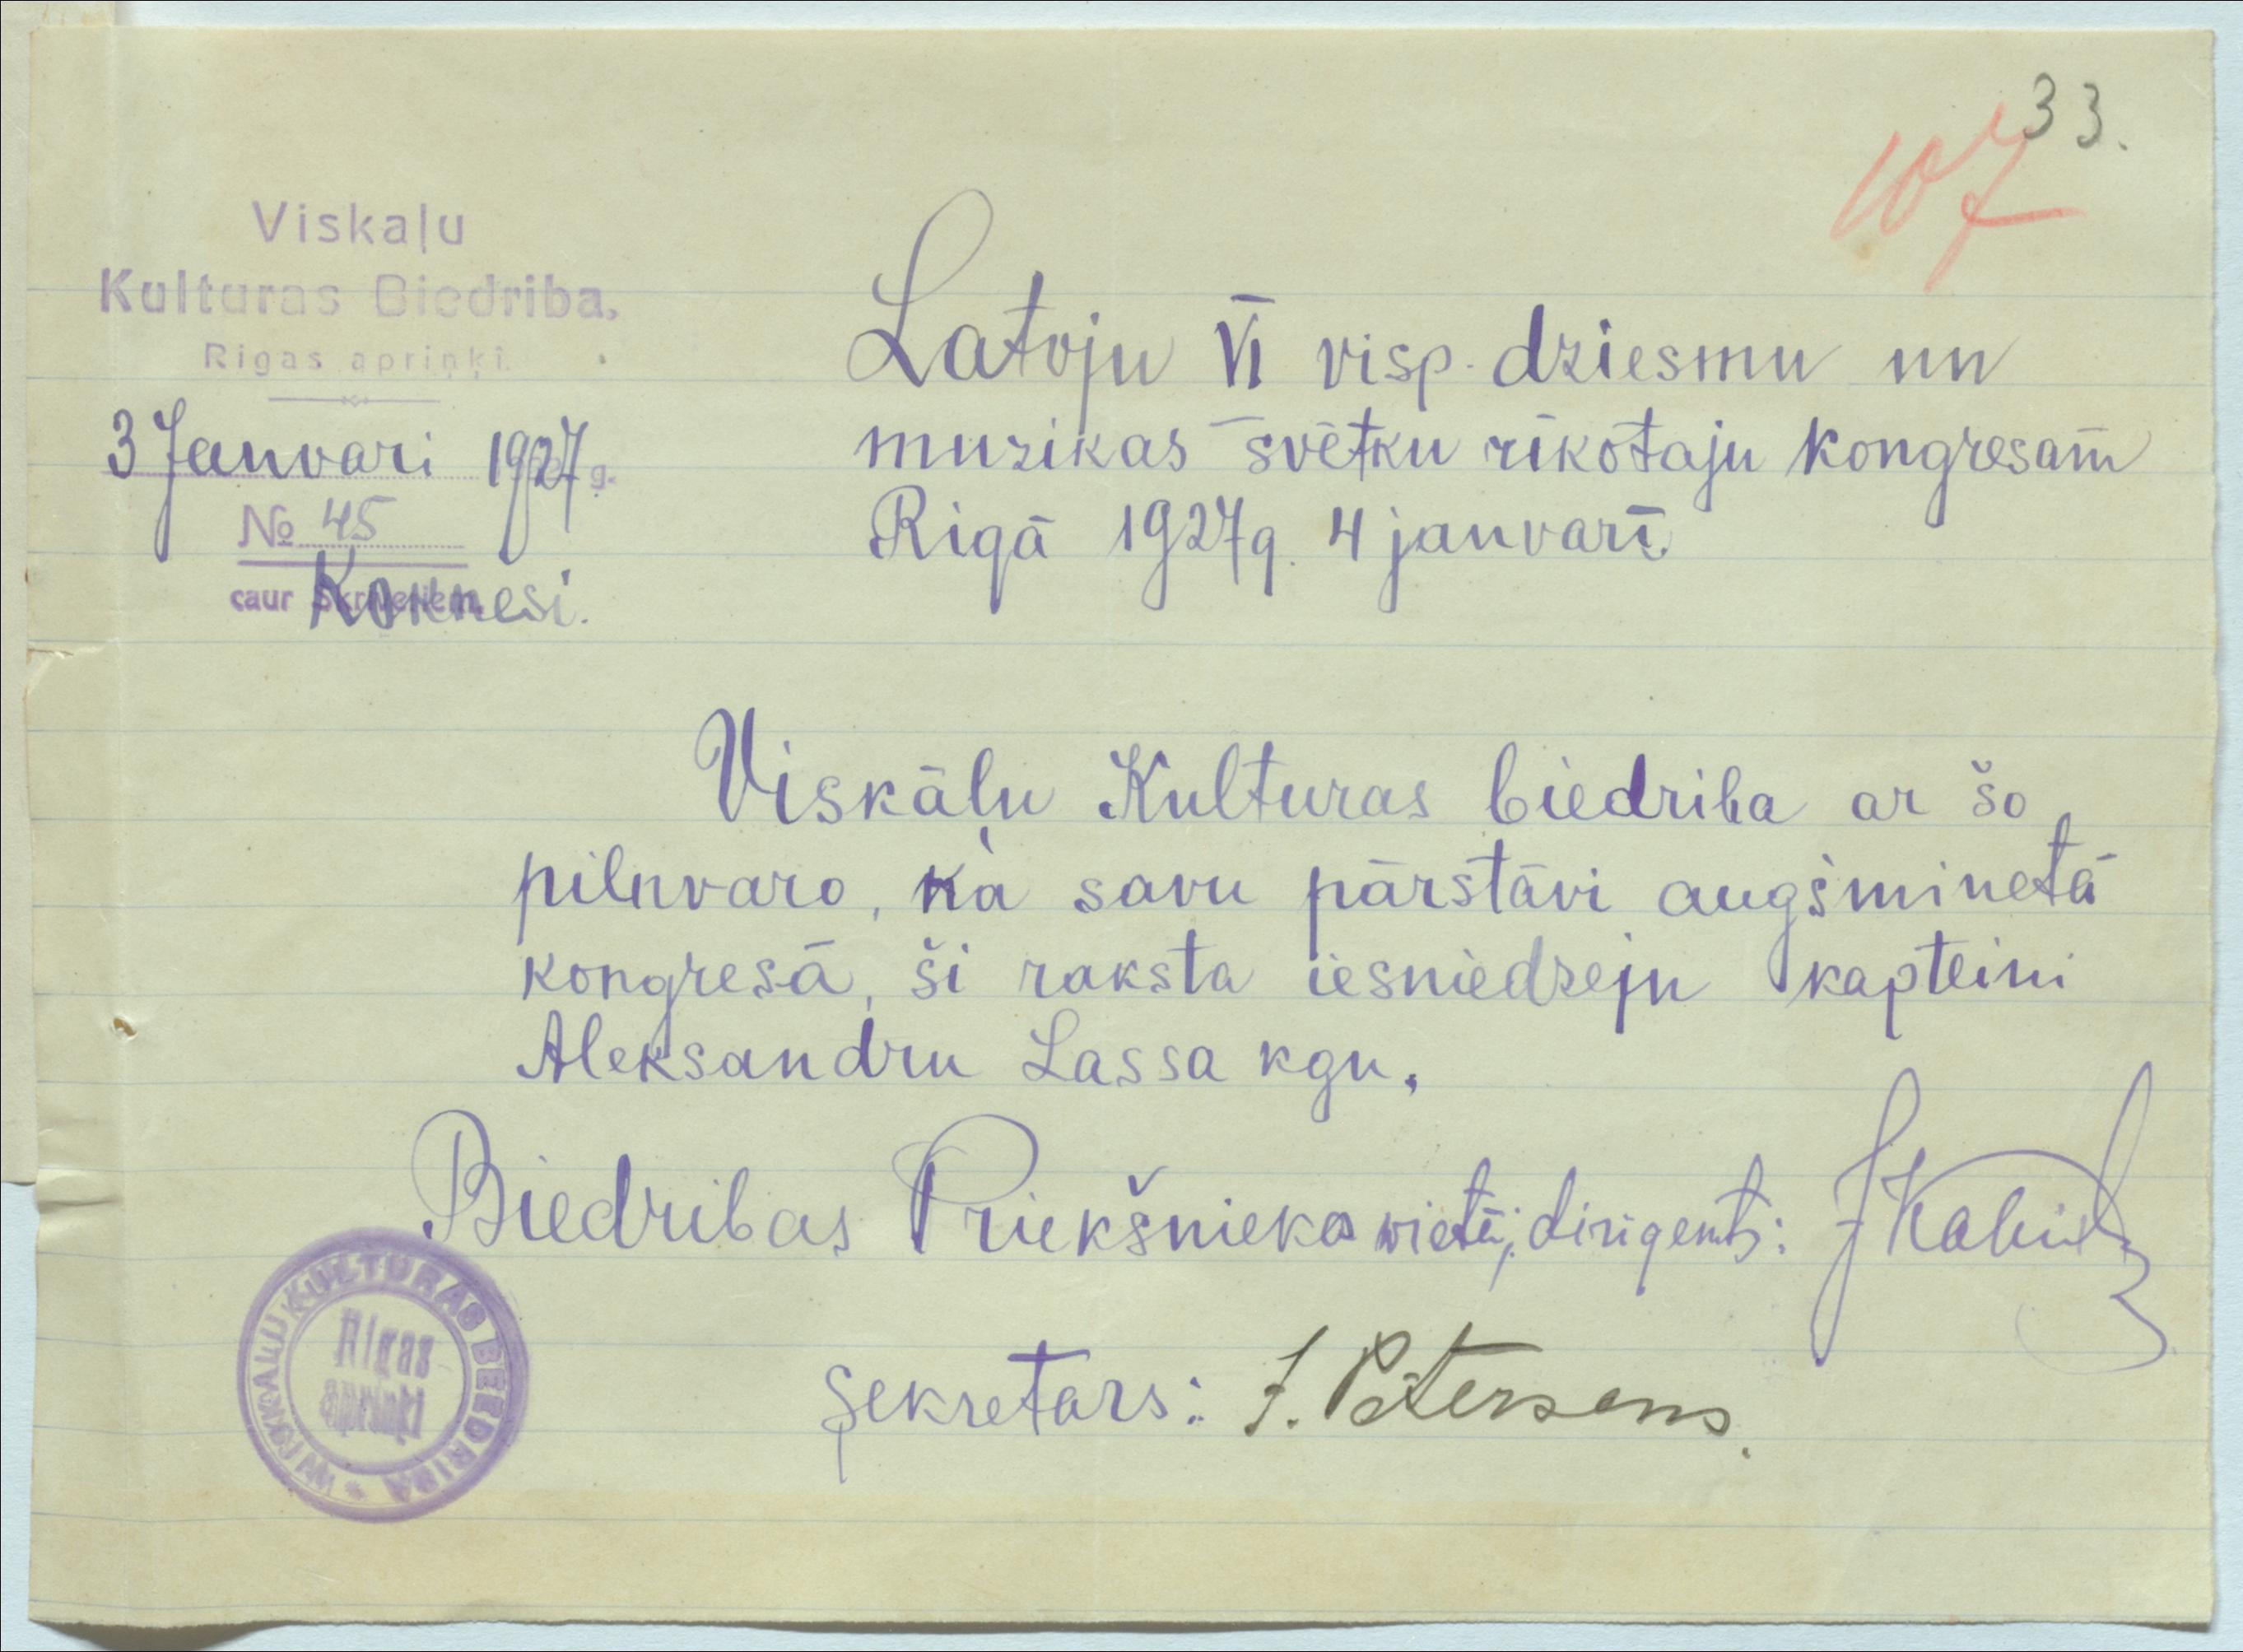 33.
107
Viskaļu
Kulturas Biedriba,
Rigas apriņķi.
3 Janvari 1927 g.
№ 45
caur Koknesi.
Latvju VI visp. dziesmu un
muzikas svētku rīkotaju kongresam
Rigā 1927 g. 4 janvarī.
Viskāļu Kulturas biedriba ar šo
pilnvaro, kà savu pārstāvi augšminetā
kongresā, ši raksta iesniedzeju kapteini
Aleksandru Lassa kgu.
Biedribas Priekšnieka vietā; dirigents:
Sekretars: J. Pētersons.
WISKAĻU KULTURAS BEEDRIBA *
Rigas
apriņķi